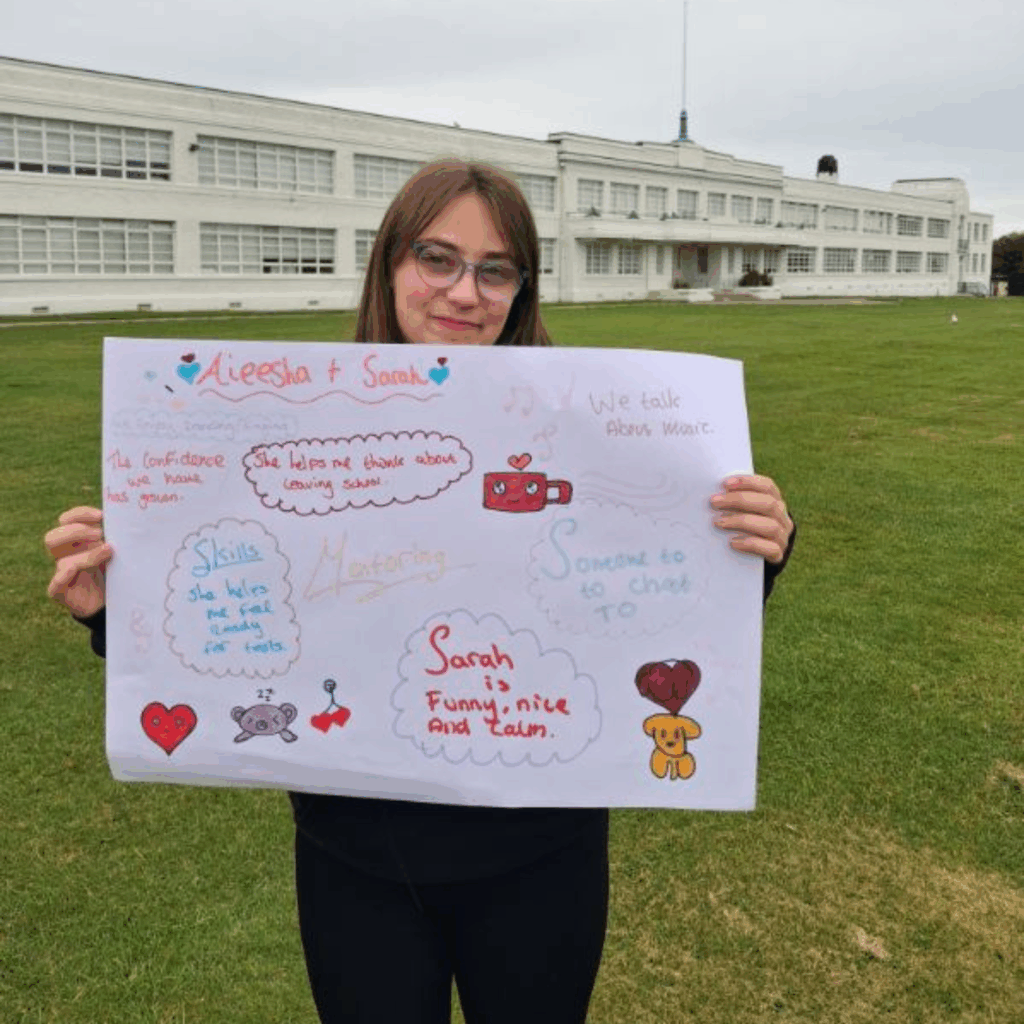 Aieesha + Sarah
We talk
About music.
we enjoy dancing/singing
The Confidence
we have
has grown.
She helps me think about
Leaving school.
Skills
She helps
me feel
Ready
for tests.
Mentoring
Someone to
to chat
TO
Sarah
is
Funny, nice
And Calm.
zz